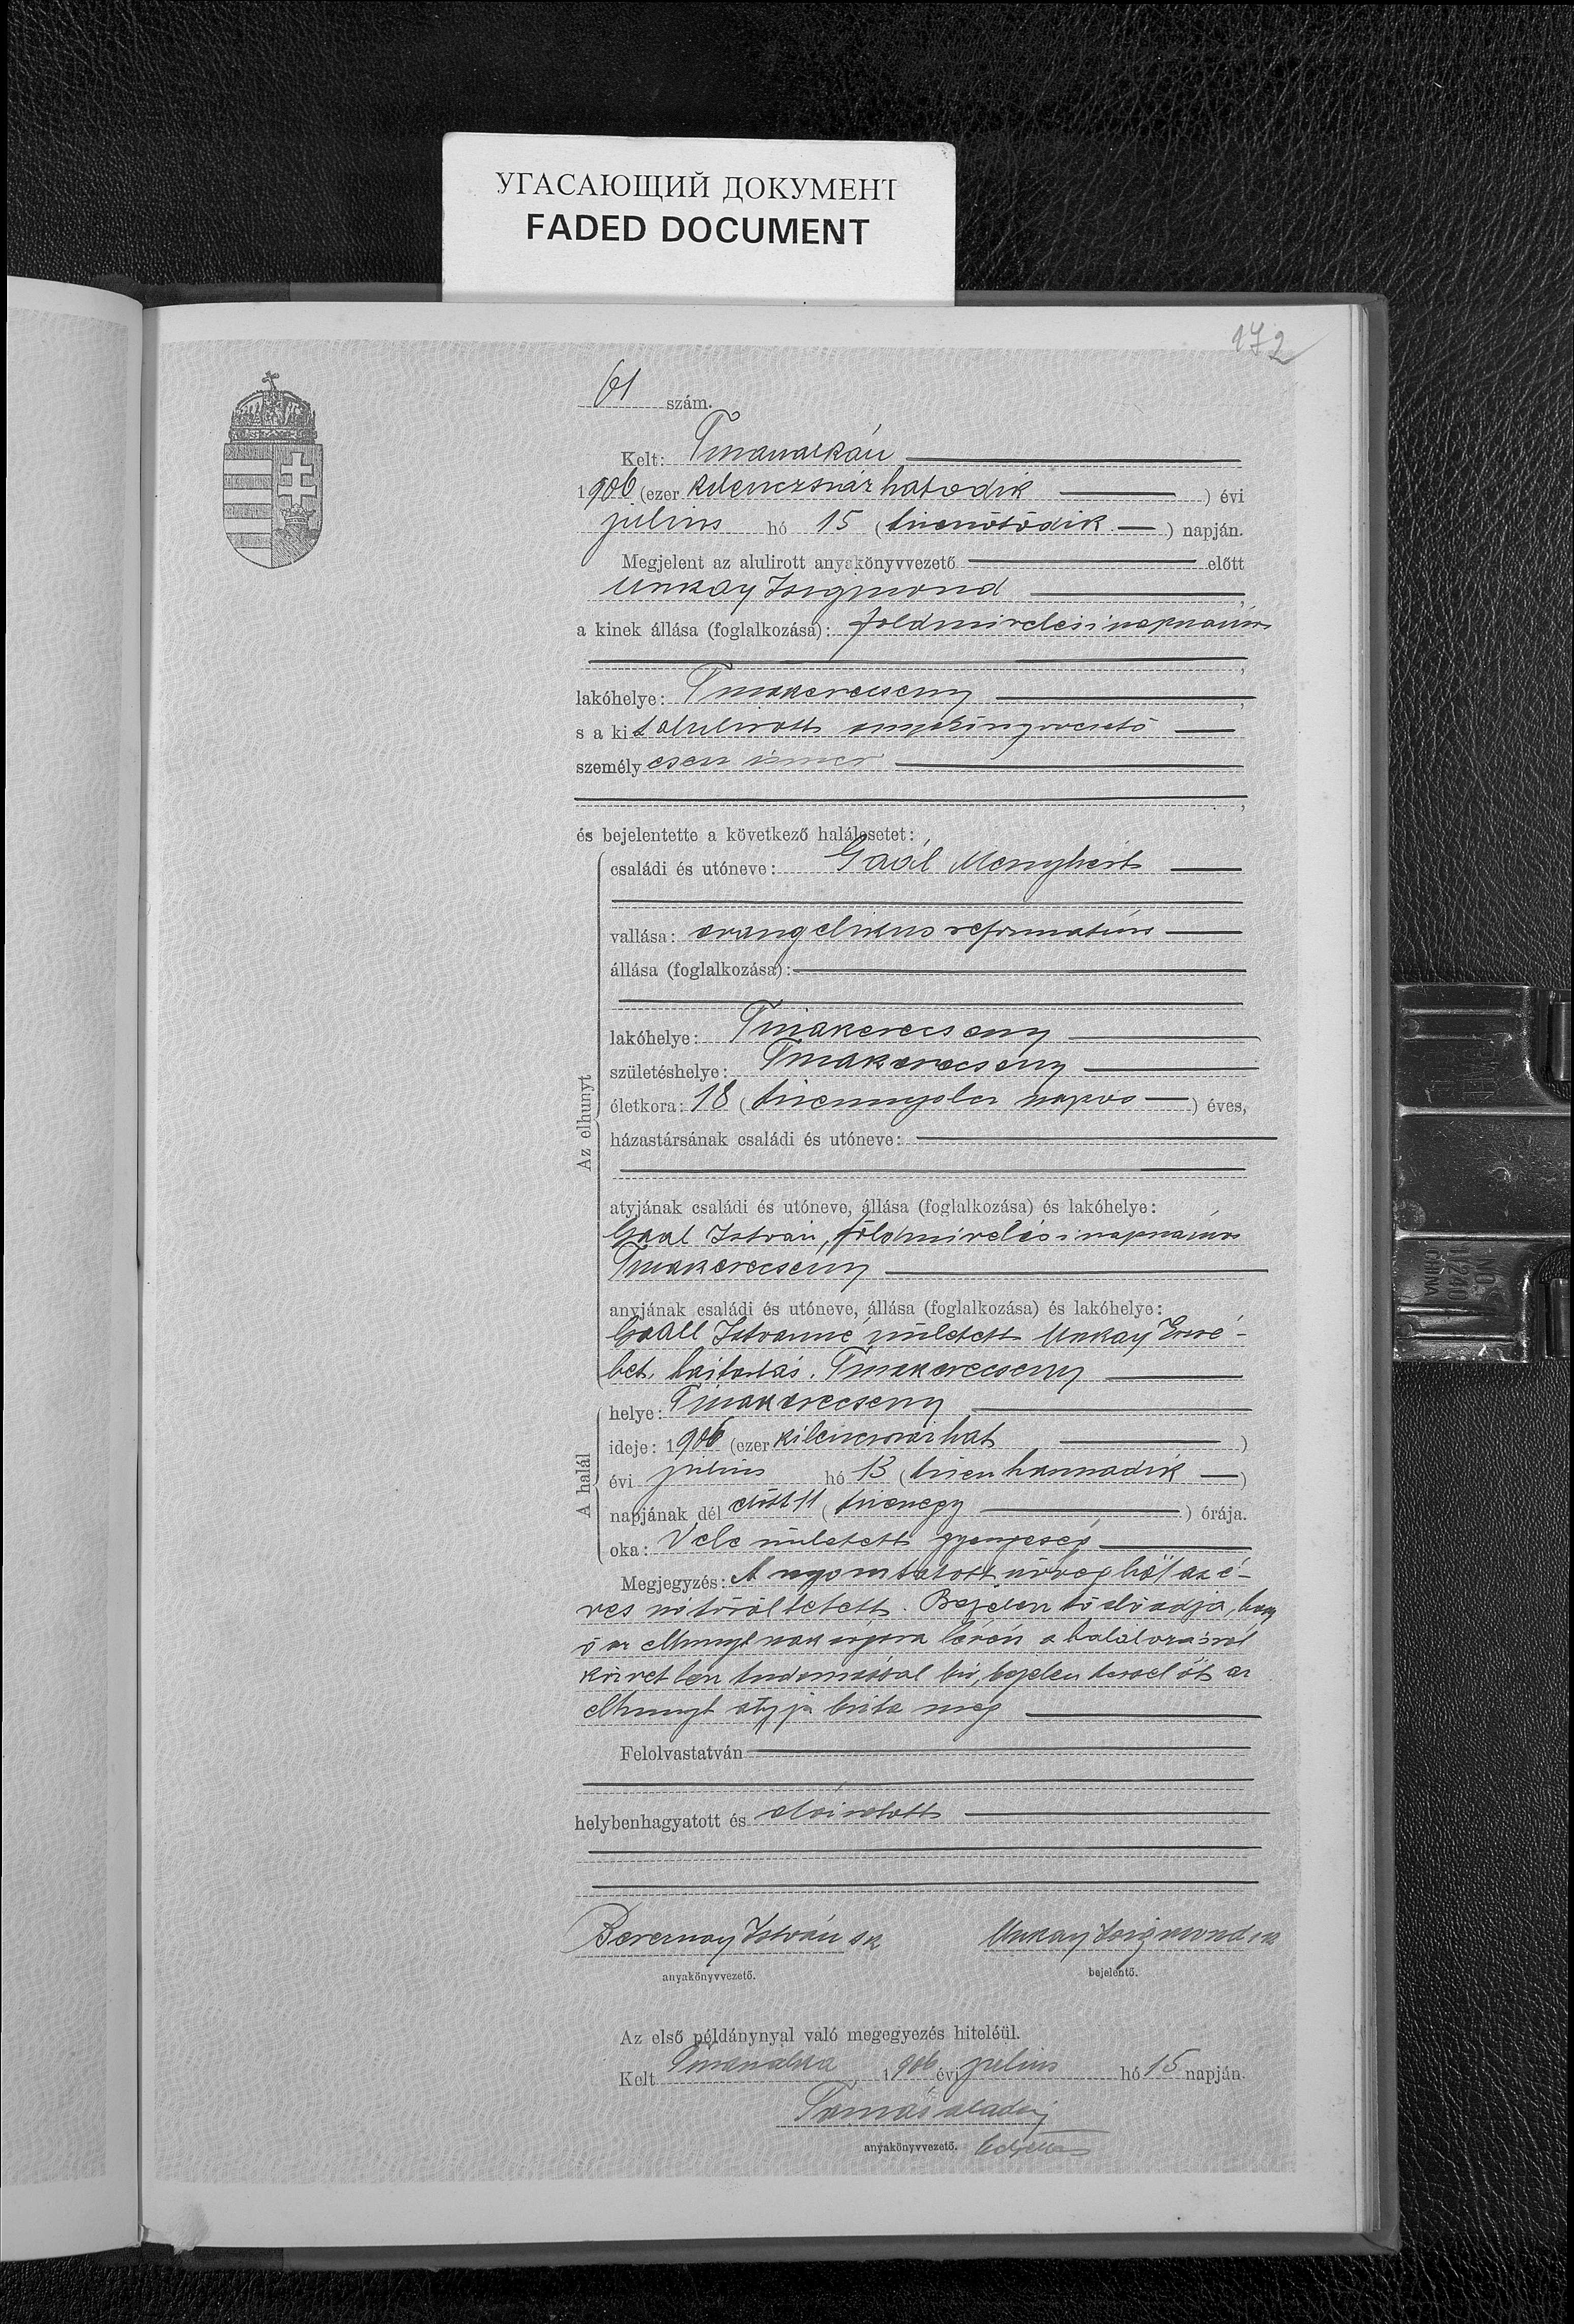 УГАСАЮЩИЙ ДОКУМЕНТ
FADED DOCUMENT
172
61 szám.
Kelt: Tiszamarkán
1906 (ezer kilenczszáz hatodik) évi
julius hó 15 (tizenötödik) napján.
Megjelent az alulirott anyakönyvvezető előtt
Unkay Zsigmond,
a kinek állása (foglalkozása): földmivelési napszámos
,
lakóhelye: Tiszakerecseny,
s a kit alulirott anyakönyvvezető
személyesen ismer
,
és bejelentette a következő halálesetet:
családi és utóneve: Gaál Menyhért
vallása: evangelikus református
állása (foglalkozása):
lakóhelye: Tiszakerecseny
születéshelye: Tiszakerecseny
Az elhunyt
életkora: 18 (tizennyolcz napos) éves,
házastársának családi és utóneve:
atyjának családi és utóneve, állása (foglalkozása) és lakóhelye:
Gaal István, földmivelési napszámos
Tiszakerecseny
anyjának családi és utóneve, állása (foglalkozása) és lakóhelye:
Gaall Istvanné született Unkay Erzsé-
bet, háztartás. Tiszakerecseny
A halál
helye: Tiszakerecseny
ideje: 1906 (ezer kilenczszáz hat)
évi julius hó 13 (tizenharmadik)
napjának dél előtt 11 (tizenegy) órája.
oka: Vele született gyengeség
Megjegyzés: A nyomtatott szövegből az é-
ves szó töröltetett. Bejelentő előadja, hogy
ő az elhunytnak lévén a halálozásról
közvetlen tudomással bir, bejelentéssel őt az
elhunyt atyja bizta meg
Felolvastatván
helybenhagyatott és aláiratott
Bereznay István sk
anyakönyvvezető.
Unkay Zsigmond sk
bejelentő.
Az első példánynyal való megegyezés hiteléül.
Kelt 1906 évi julius hó 15 napján.
Tamás
anyakönyvvezető. helyettes
No
11240
CHINA